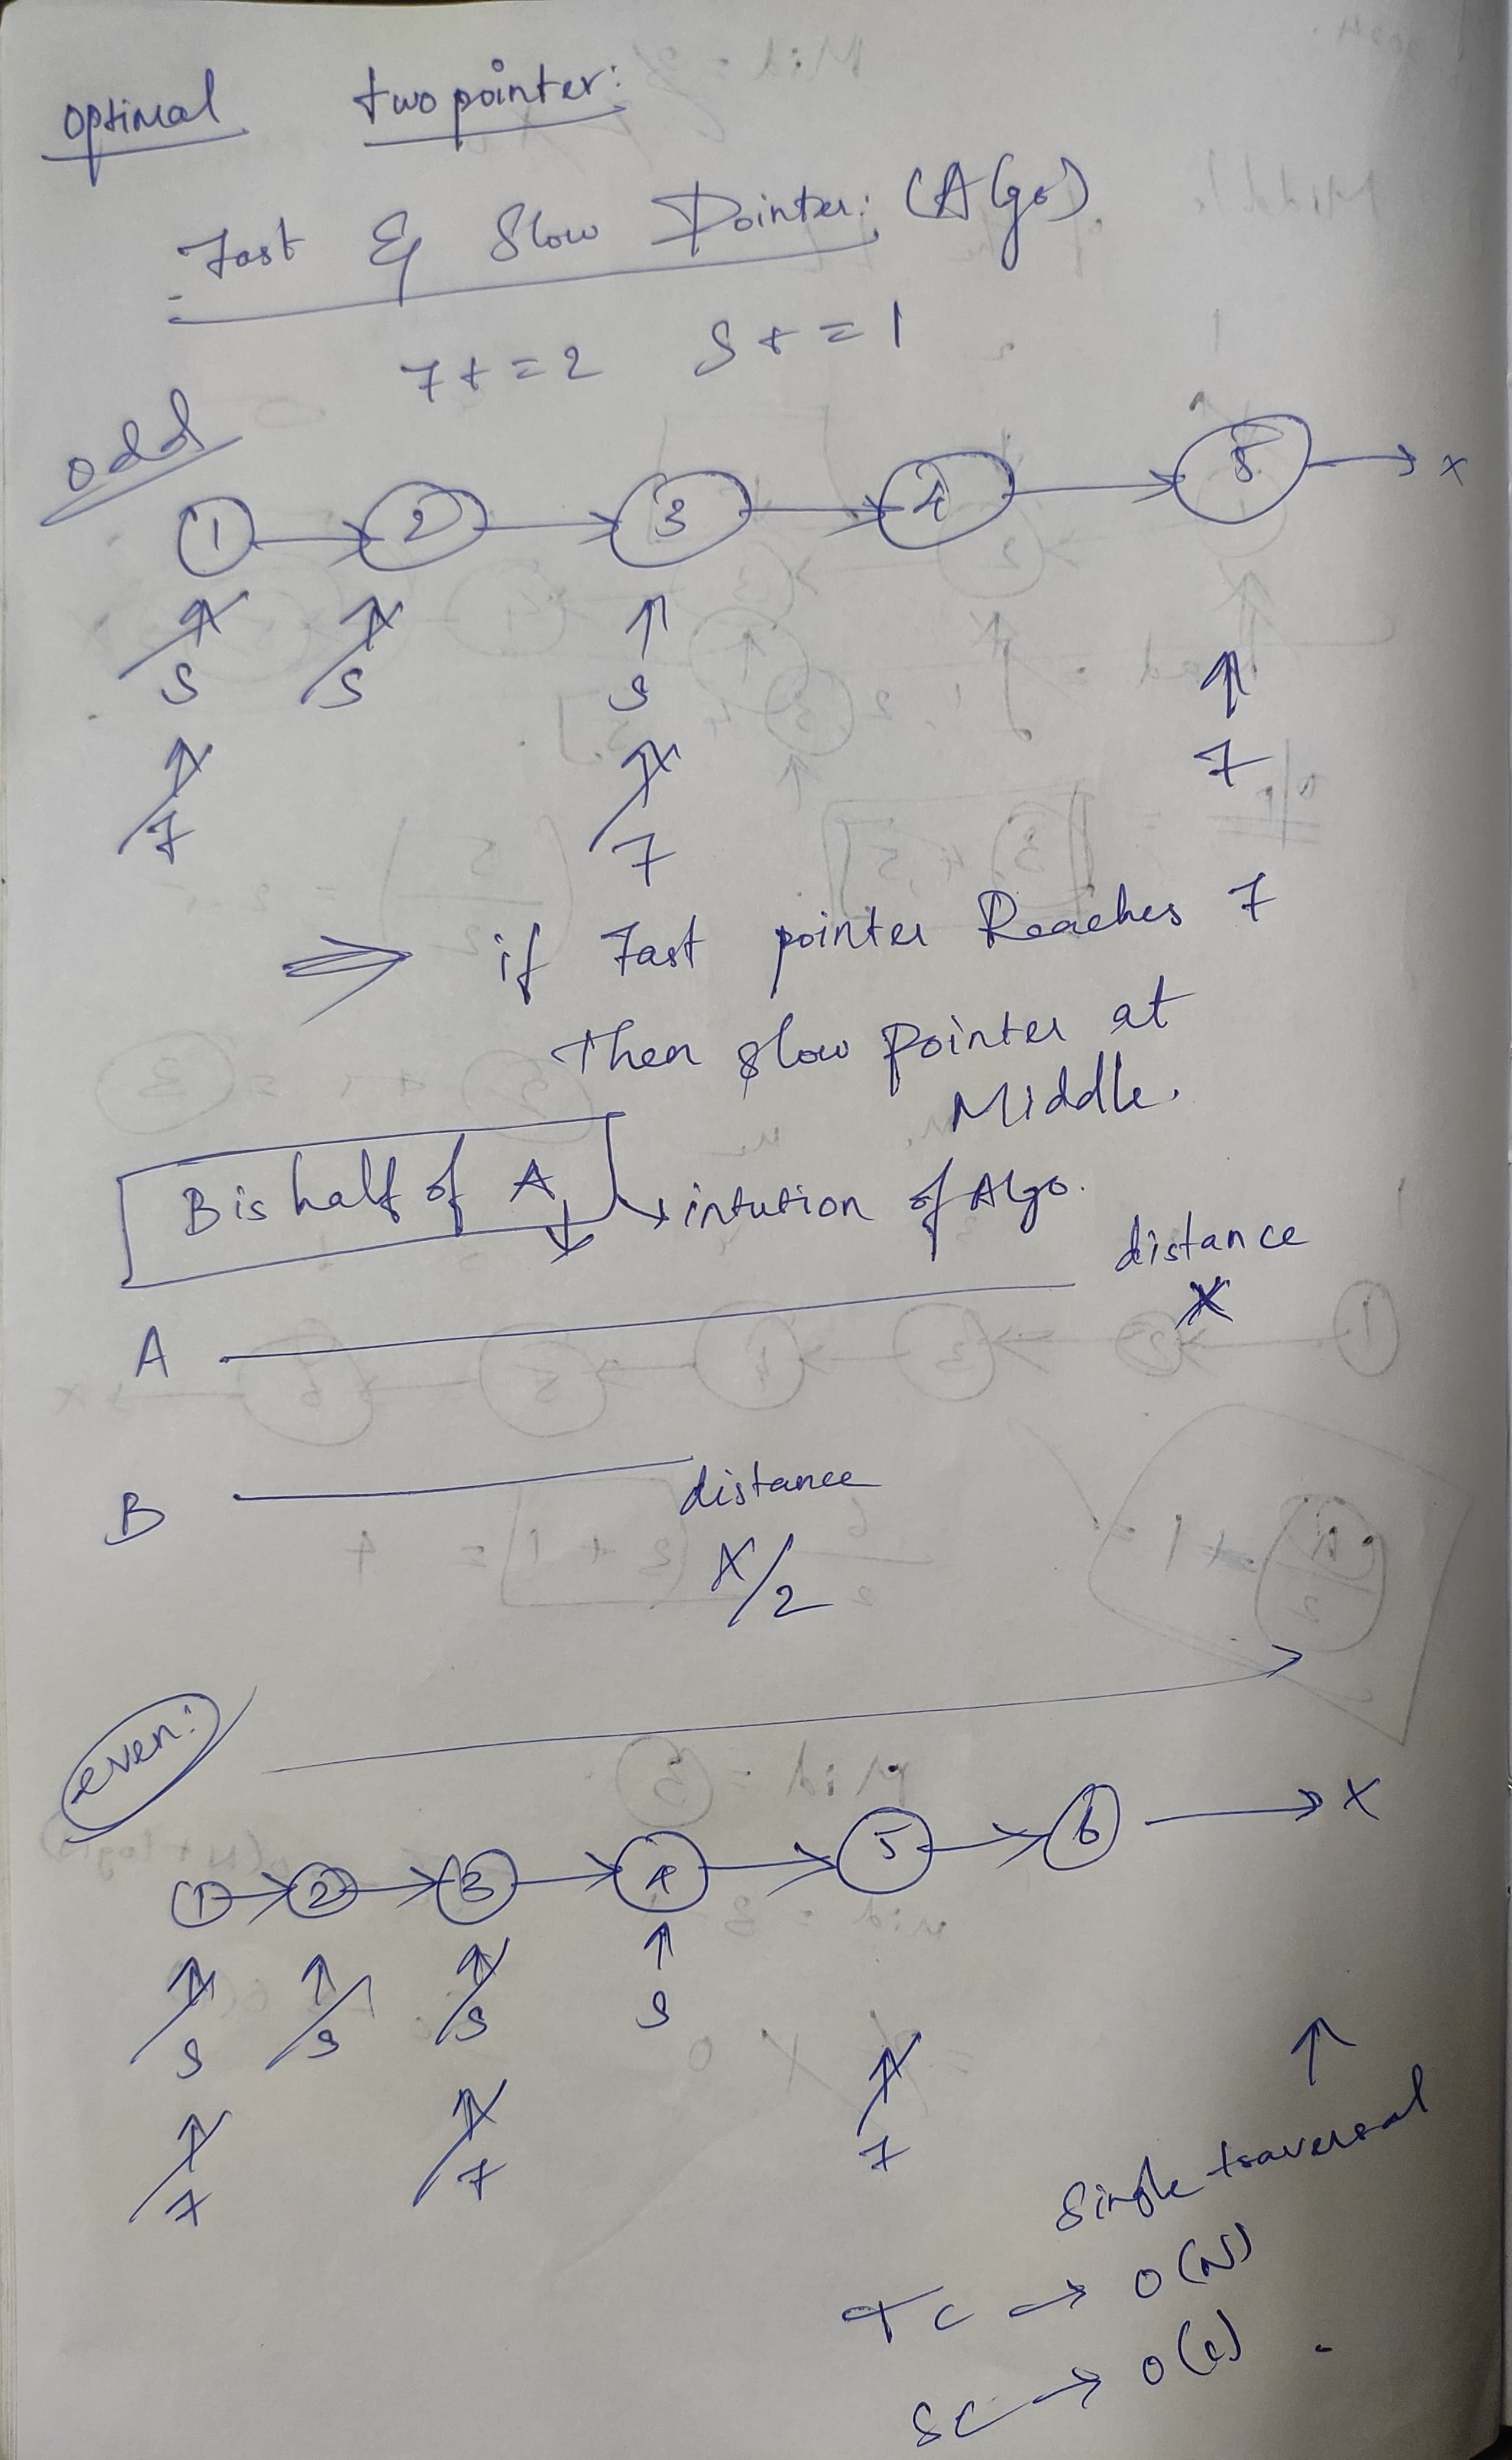 optimal two pointer:
Fast & Slow Pointer: (Algo)
F+=2 S+=1
odd
1 → 2 → 3 → 4 → 5 → x
↑ ↑ ↑ ↑
S S S
↑ ↑
F F F
⇒ if Fast pointer Reaches F
Then slow Pointer at
Middle.
B is half of A → intution of Algo.
A distance
X
B distance
X/2
even:
1 → 2 → 3 → 4 → 5 → 6 → X
↑ ↑ ↑ ↑
S S S S
↑ ↑ ↑ ↑
F F F
Single traversal
TC → O(N)
SC → O(1)